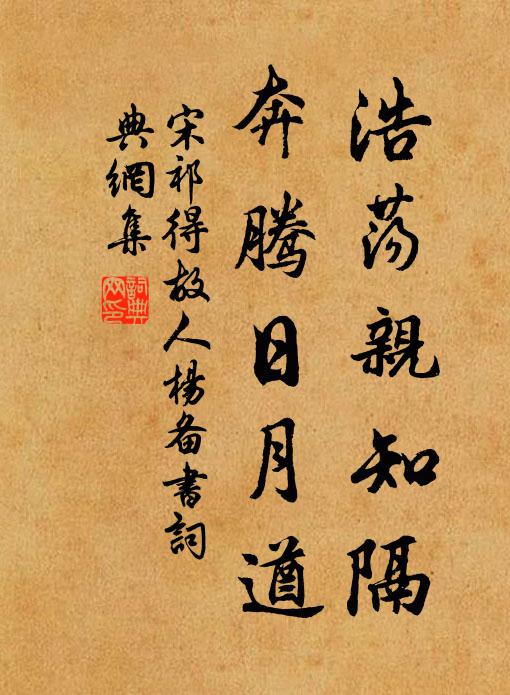 浩荡親知隔
奔騰日月遒
宋祁得故人楊备書詞
典網集
詞典
网印